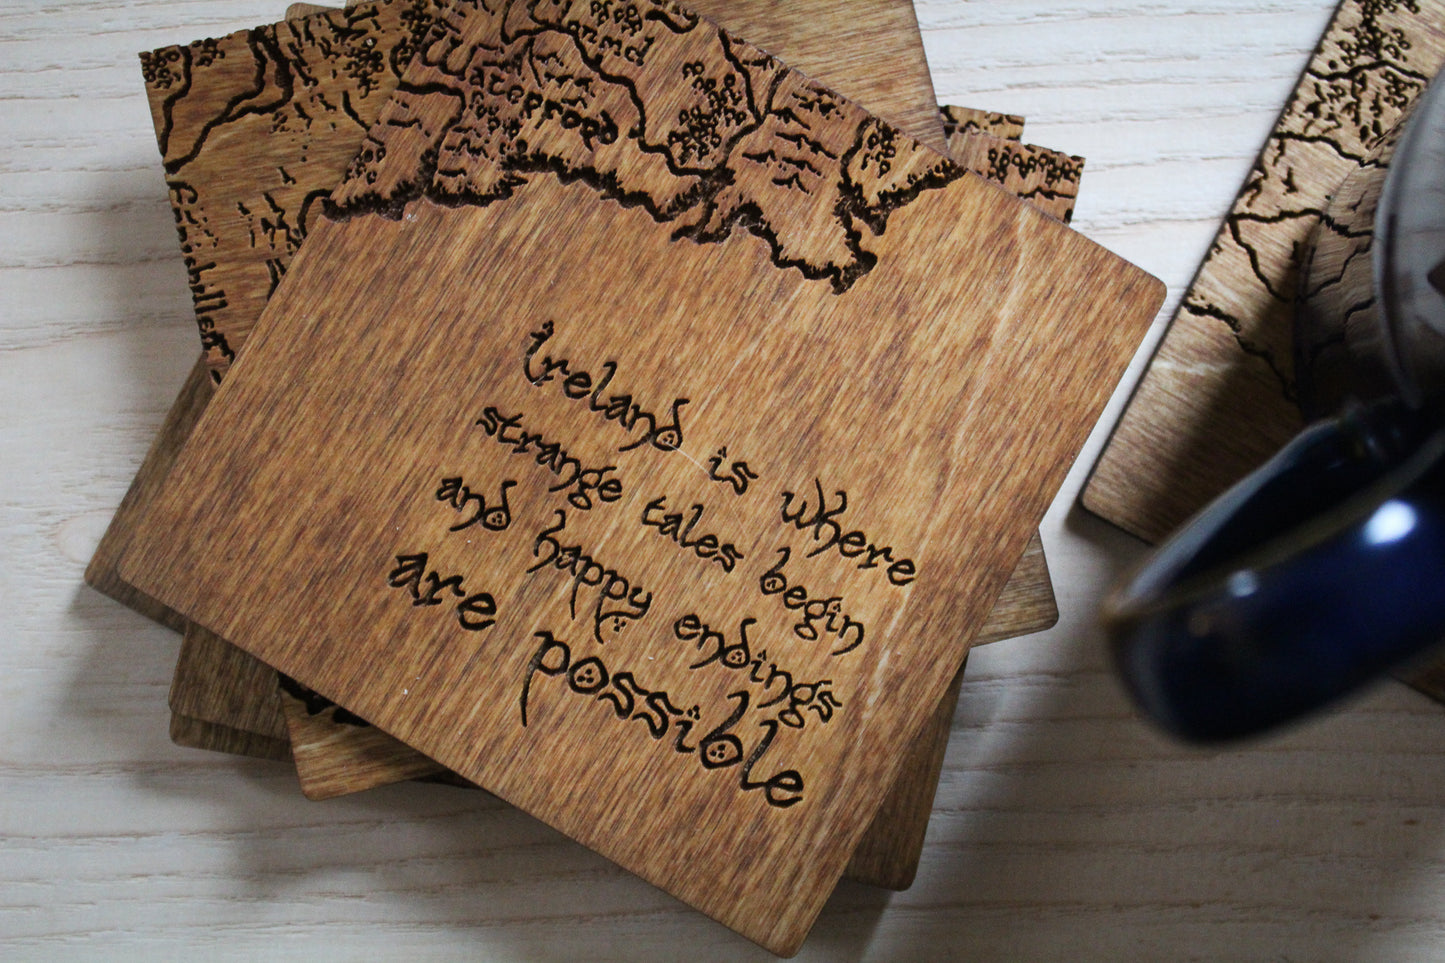 Ireland is where
strange tales begin
and happy endings
are possible